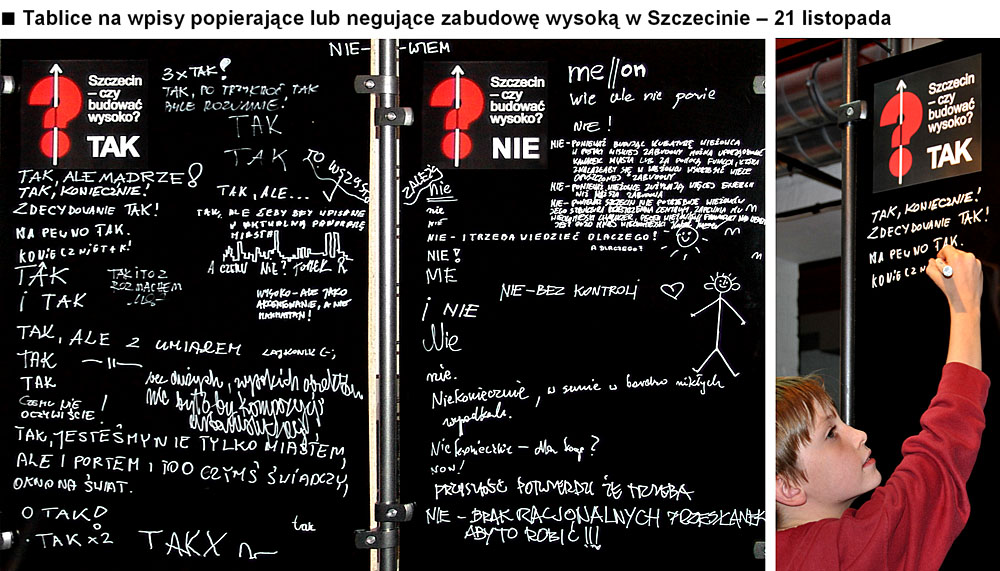 ■ Tablice na wpisy popierające lub negujące zabudowę wysoką w Szczecinie – 21 listopada
NIE - - WIEM
Szczecin
– czy
budować
wysoko?
TAK
3xTAK!
TAK, PO TRZYKROĆ TAK
BYLE ROZUMNIE!
TAK
TAK
TO WYŻSZE
TAK, ALE MĄDRZE!
TAK, KONIECZNIE!
ZDECYDOWANIE TAK!
NA PEWNO TAK.
KONIECZNIE TAK!
TAK, ALE...
TAK, ALE ŻEBY BYŁ WPISANE
W AKTUALNĄ PANORAMĘ
MIASTA
A CZEMU NIE?
TAK
I TAK
TAK I TO Z
ROZMACHEM
WYSOKO - ALE JAKO
AKCENTOWANIE, A NIE
MANHATTAN!
TAK, ALE Z UMIAREM
TAK
TAK
CZEMU NIE
OCZYWIŚCIE!
bez dużych, wysokich obiektów
nie byłoby kompozycji
urbanistycznej!
TAK, JESTEŚMY NIE TYLKO MIASTEM,
ALE I PORTEM I TO O CZYMŚ ŚWIADCZY,
OKNO NA ŚWIAT.
O TAK!
TAK x2
TAKX
tak
Szczecin
– czy
budować
wysoko?
NIE
me//on
wie ale nie powie
NIE!
ZALEŻY
nie
nie
nie
NIE
NIE - I TRZEBA WIEDZIEĆ DLACZEGO!
A DLACZEGO?
NIE!
ME
NIE - BEZ KONTROLI
i NIE
Nie
nie.
Niekoniecznie, w sumie w bardzo nikłych
wypadkach.
Niekoniecznie - dla kogo?
NON!
PRZYSZŁOŚĆ POTWIERDZI ŻE TRZEBA
NIE - BRAK RACJONALNYCH PRZESŁANEK
ABY TO ROBIĆ!!!
Szczecin
– czy
budować
wysoko?
TAK
TAK, KONIECZNIE!
ZDECYDOWANIE TAK!
NA PEWNO TAK.
KONIECZN